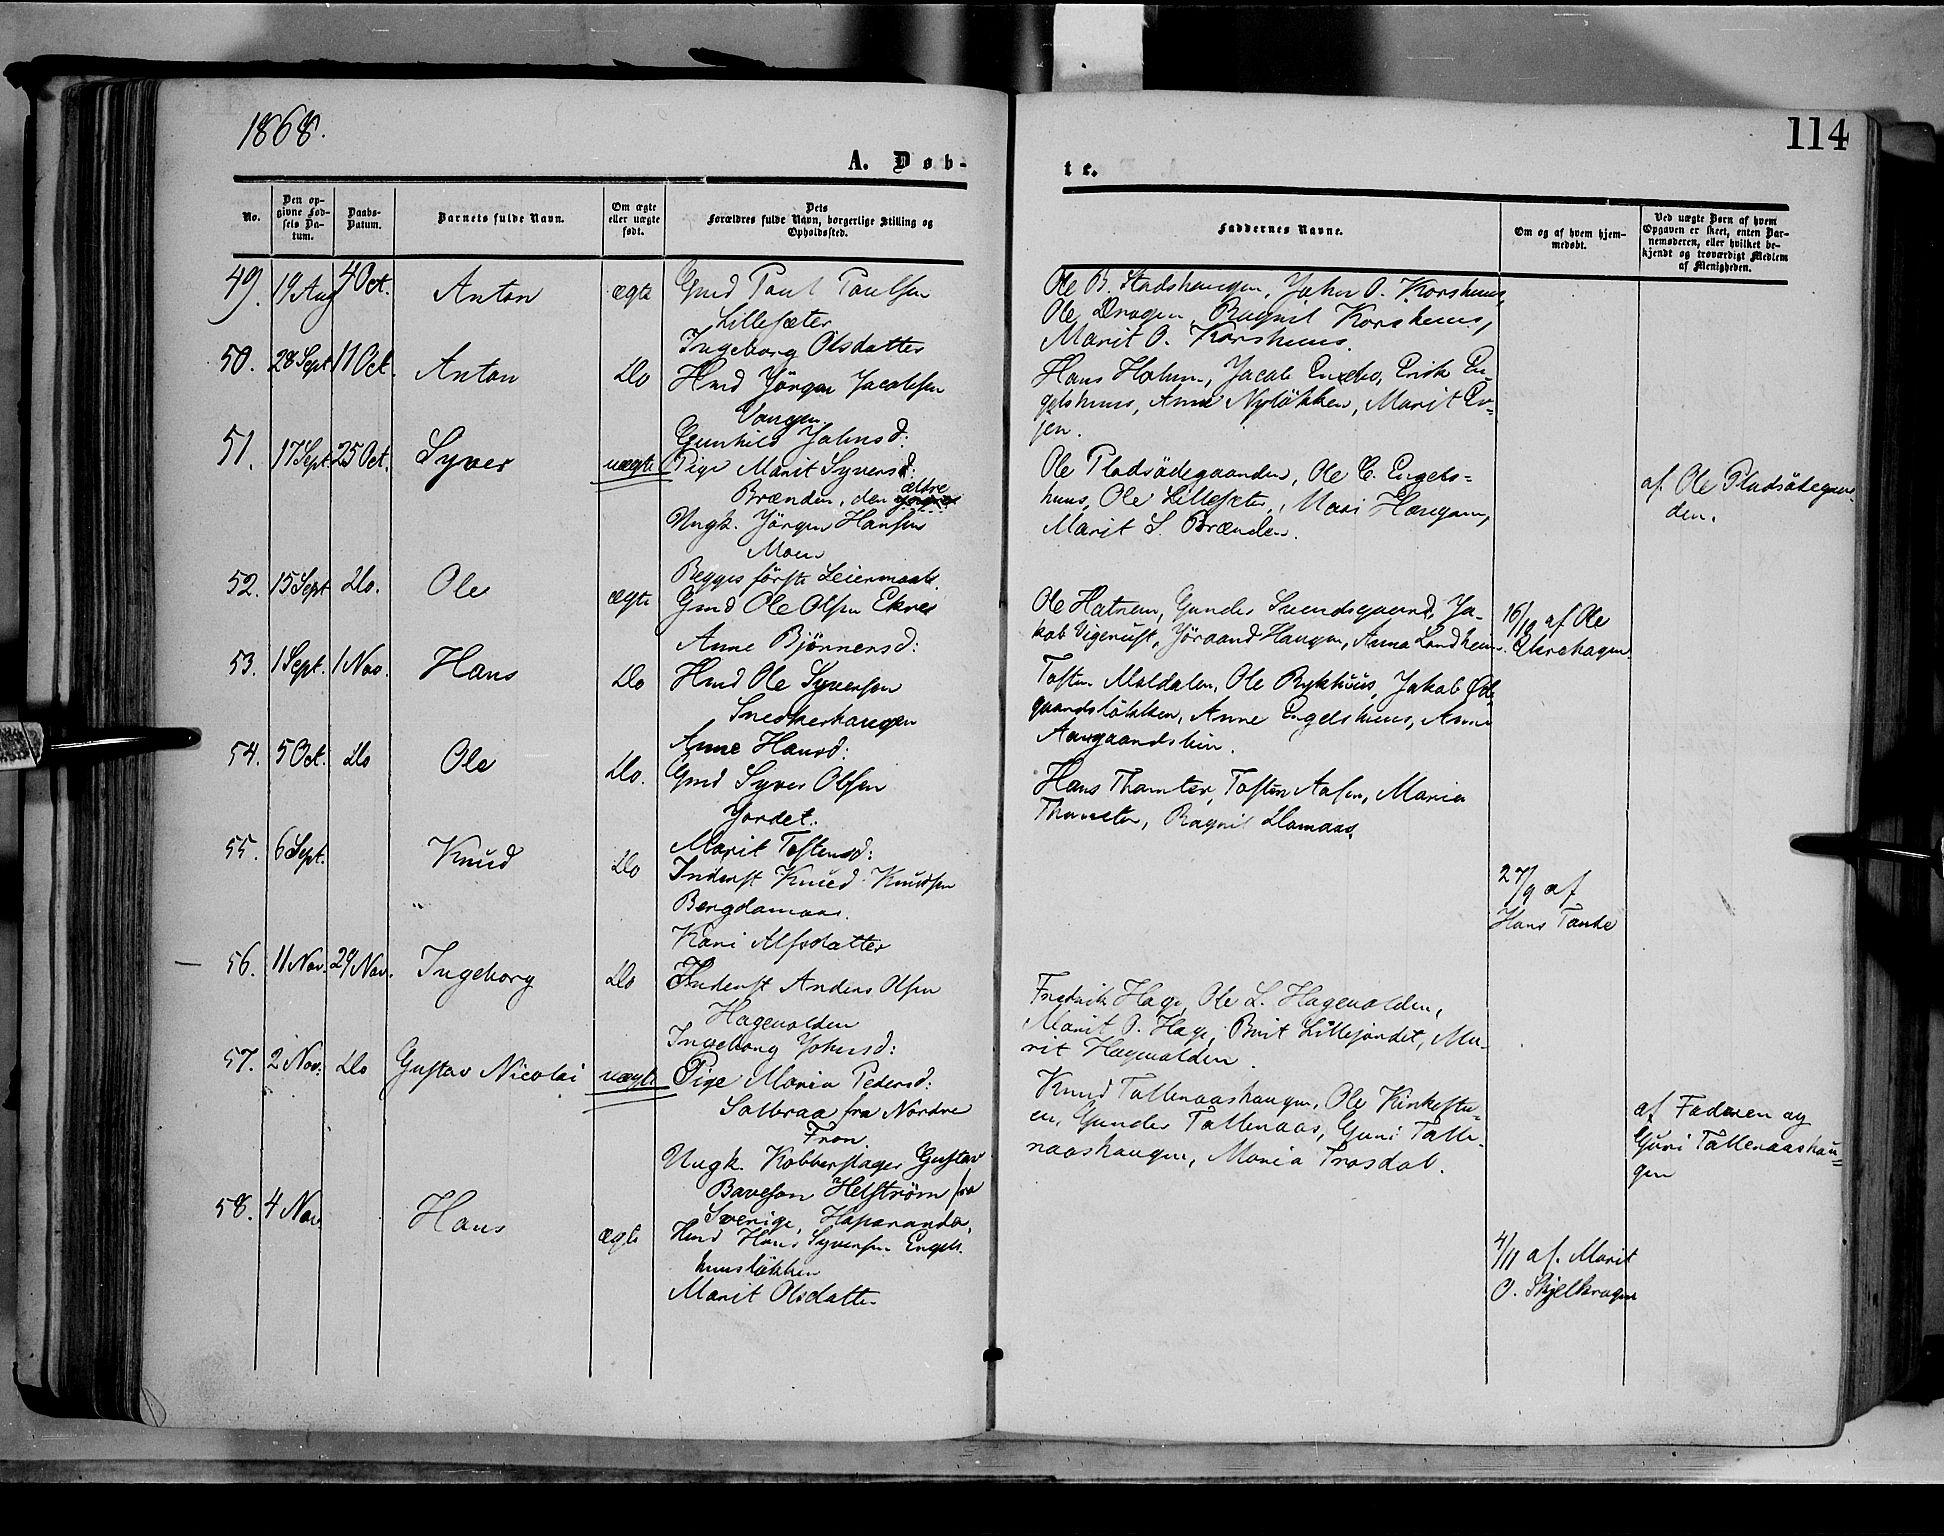 1868.
114
A. Døb-
te.
No.
Den op-
givne Fød-
sels Da-
tum.
Daabs-
Datum.
Barnets fulde Navn.
Om ægte
eller uægte
født.
Dets
Forældres fulde Navn, borgerlige Stilling og
Opholdssted.
Faddernes Navne.
Om og af hvem hjem-
medøbt.
Ved uægte Børn af hvem
Opgaven er skeet, enten Bar-
nemoderen, eller hvilket be-
kjendt og troværdigt Medlem
af Menigheden.
49. 19 Aug 4 Oct. Anton ægte Gmd Poul Poulsen
Lillesæter
Ingeborg Olsdatter
Ole B. Stadshaugen, John O. Korshuus,
Ole Dragen, Ragnil Korshuus,
Marit O. Korshuus.
50. 28 Sept 11 Oct. Anton Do Hmd Jörgen Jacobsen
Vangen.
Gunhild Johnsd:
Hans Holm, Jacob Enebo, Erik En-
gelshuus, Anne Nyløkken, Marit Ev-
jen.
51. 17 Sept 25 Oct. Syver uægte Pige Marit Syversd:
Brænden, den ældre
Ungk. Jörgen Hansen
Moen
Begges første Leiermaal.
Ole Pladsødegaarden, Ole C. Engels-
huus, Ole Lillesæter, Mari Haugen,
Marit S. Brænden.
af Ole Pladsødegaar-
den.
52. 15 Sept Do. Ole ægte Gmd Ole Olsen Ekre
Anne Bjørnersd:
Ole Hatrem, Gunder Svendsgaard, Ja-
kob Vigerust, Jöraand Haugen, Anna Landheim.
16/9 af Ole
Ekrehagen.
53. 1 Sept. 1 Nov. Hans Do Hmd Ole Syversen
Snedkerhaugen
Anne Hansd:
Tosten Moldalen, Ole Rykhuus, Jakob Øde-
gaardsløkken, Anne Engelshuus, Anne
Aargaardslien.
54. 5 Oct. Do Ole Do. Gmd Syver Olsen
Jordet.
Marit Tostensd:
Hans Thomter, Tosten Aasen, Maria
Thomter, Ragnil Domaas.
55. 6 Sept. Knud Do Inderst Knud Knudsen
Bergdomaas.
Kari Alfsdatter
27/9 af
Hans Tande
56. 11 Nov. 29 Nov. Ingeborg Do Inderst Anders Olsen
Hagevolden
Ingeborg Johnsd:
Fredrik Hage, Ole L. Hagevolden,
Marit O. Hage, Brit Lillejordet, Ma-
rit Hagevolden.
57. 2 Nov. Do Gustav Nicolai uægte Pige Maria Pedersd:
Solbraa fra Nordre
Fron.
Ungk. Kobberslager Gustav
Helström fra
Sverige, Haparanda,
Knud Tallenaashaugen, Ole Kirkestu-
en, Gunder Tallenaas, Guri Talle-
naashaugen, Maria Trosdal.
af Faderen og
Guri Tallenaashau=
gen
58. 4 Nov Hans ægte Hmd Hans Syversen Engels-
huusløkken
Marit Olsdatter
4/11 af. Marit
O. Skjelkragen